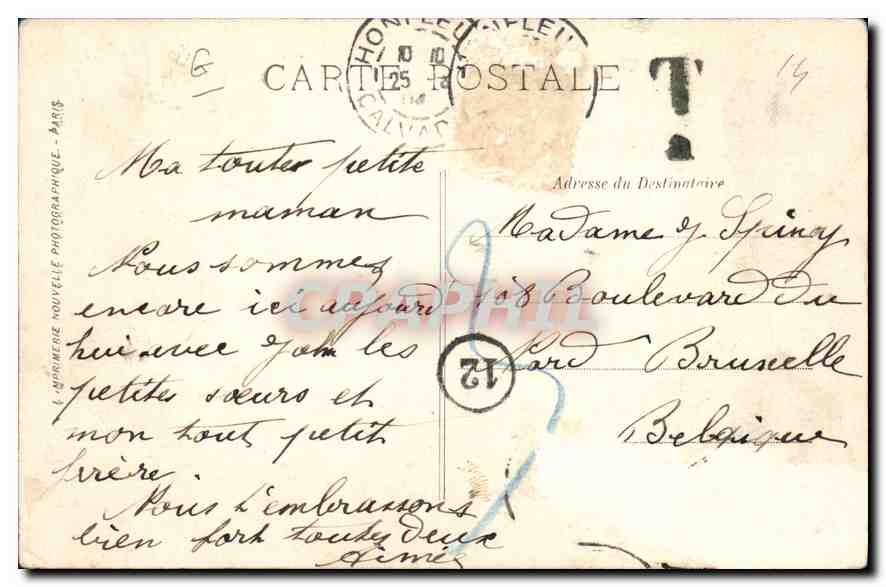 CARTE POSTALE
HONFLEUR
10 10
25
CALVADOS
T
14
G
Adresse du Destinataire
L'IMPRIMERIE NOUVELLE PHOTOGRAPHIQUE. - PARIS
Ma toute petite
maman
Nous sommes
encore ici aujourd
hui avec John les
petites sœurs et
mon tout petit
frère
Nous t'embrassons
bien fort toutes deux
Aimée
Madame J Spincy
108 Boulevard du
Nord Bruxelle
Belgique
12
CPAPHIL